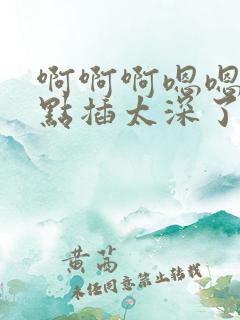 啊啊啊嗯嗯
點插太深了
黄芮
未经同意禁止转载